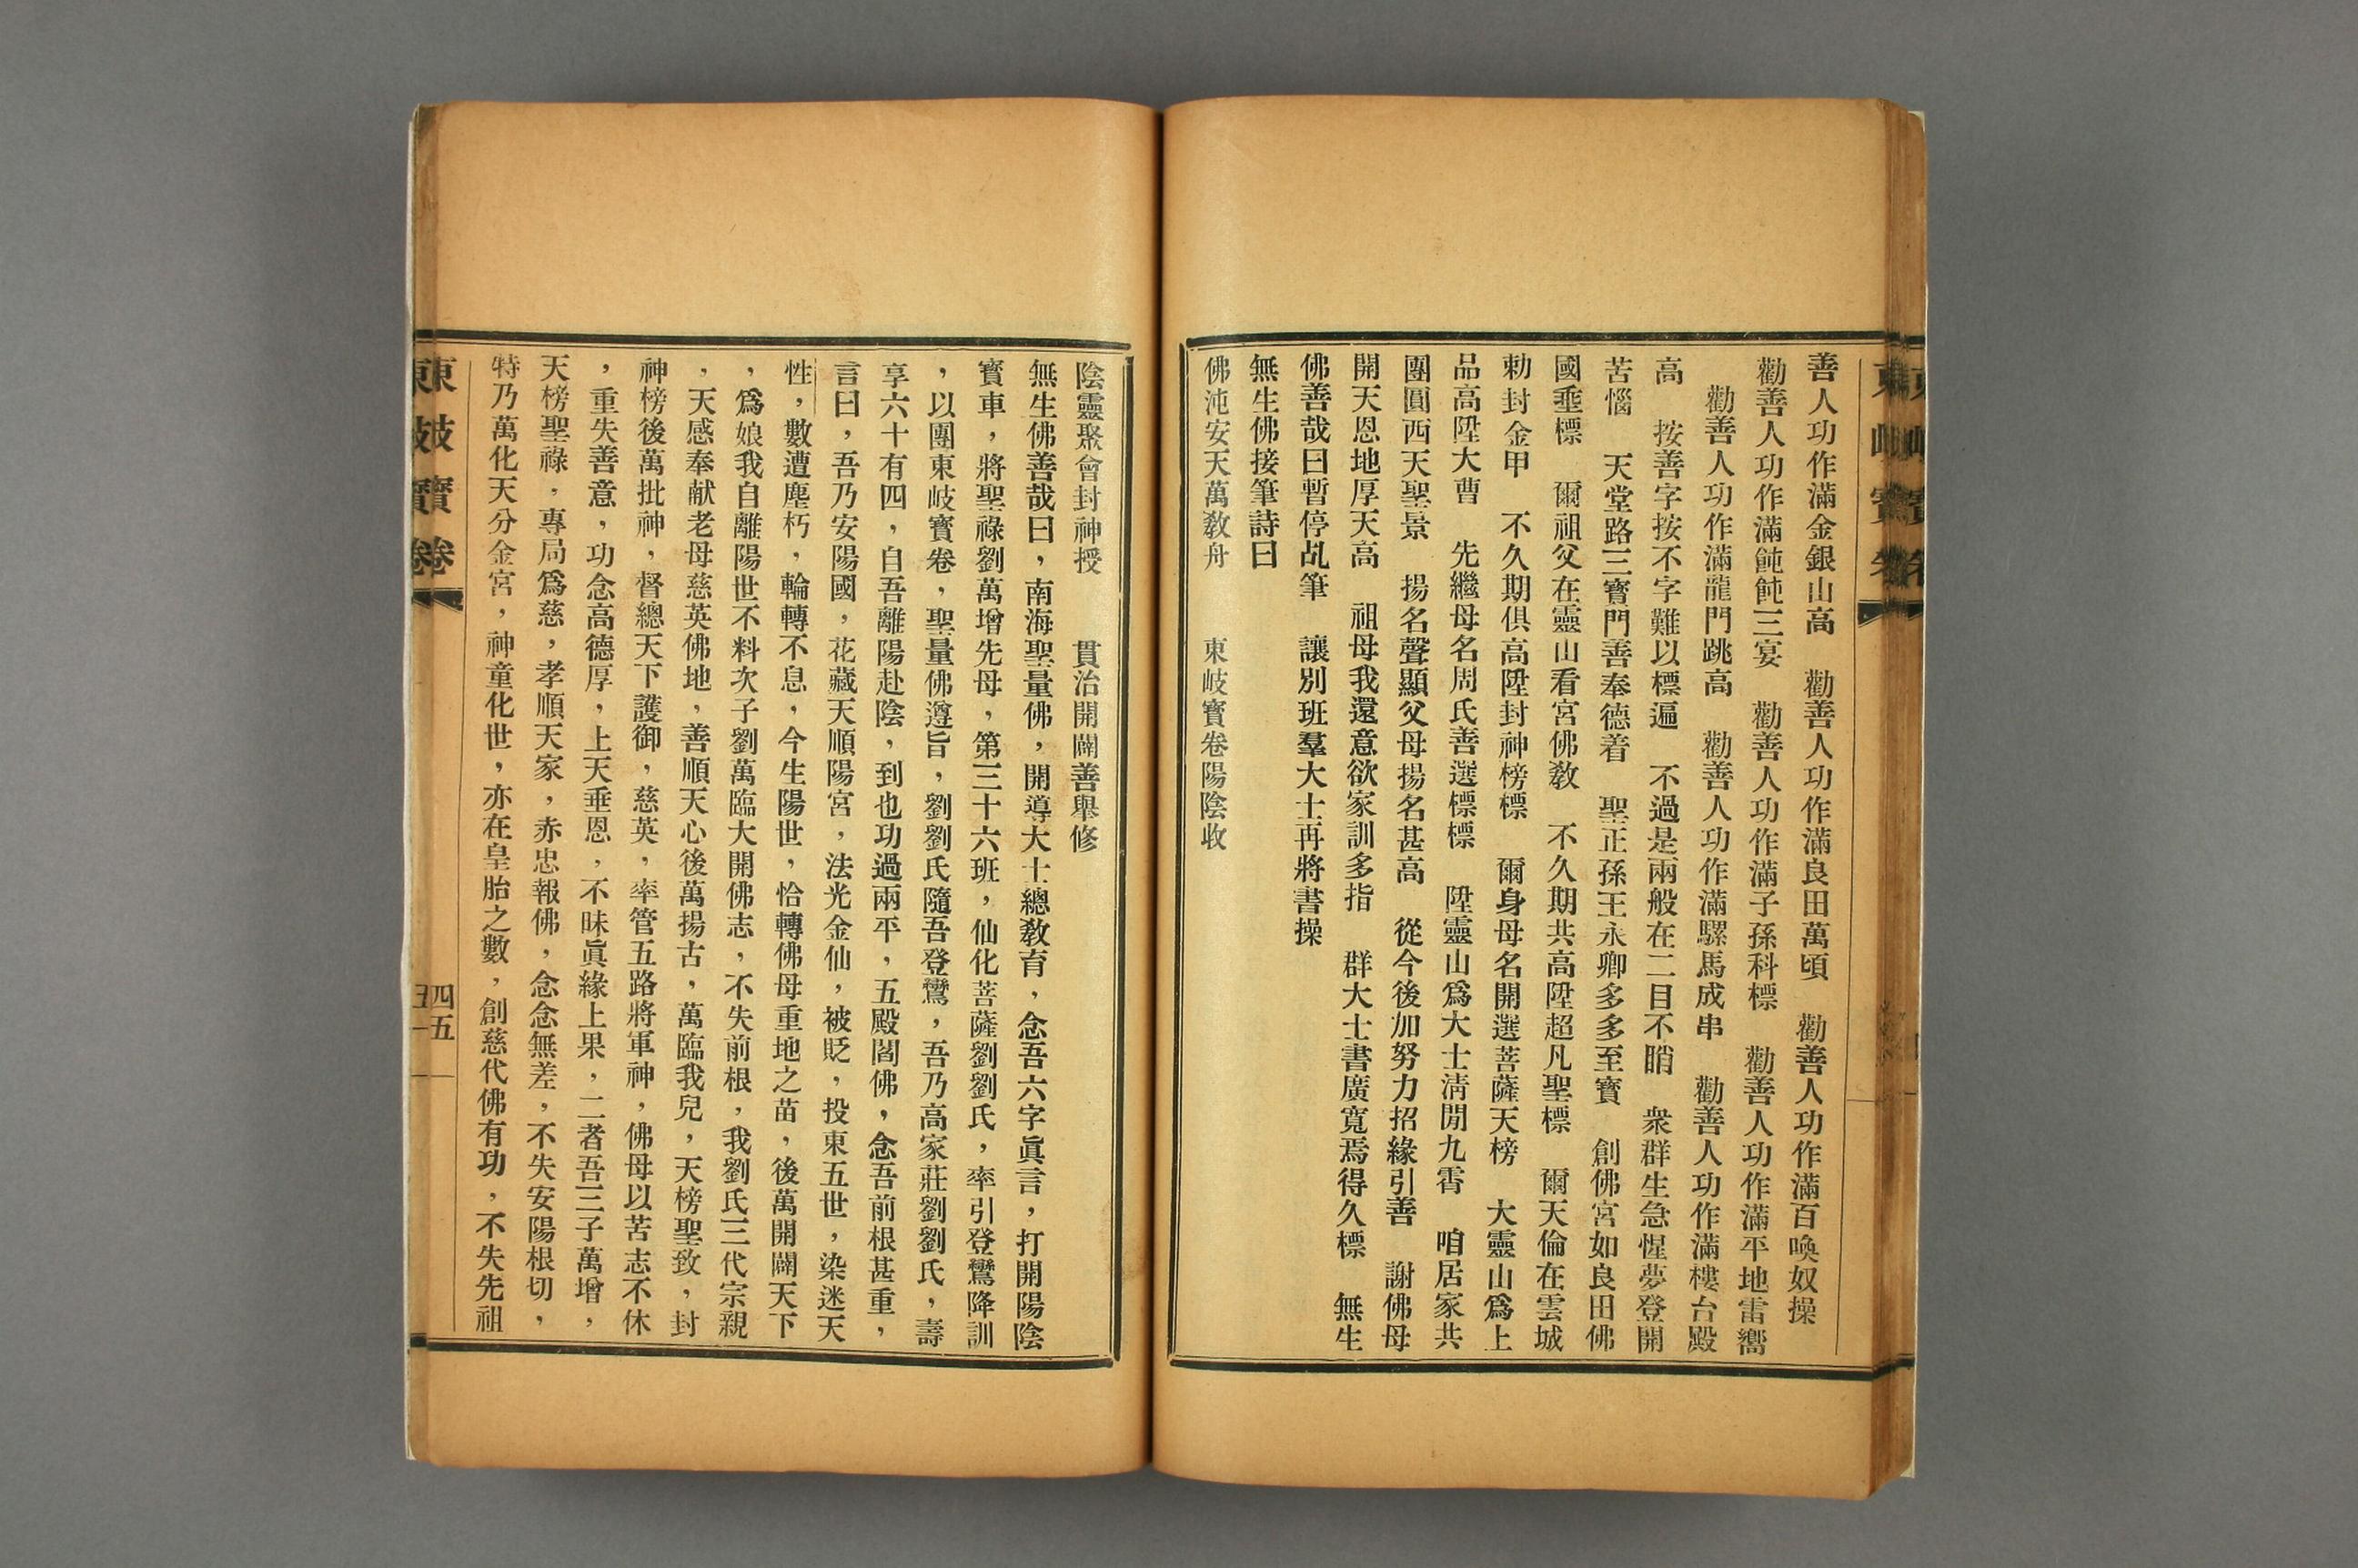 善人功作滿金銀山高　勸善人功作滿良田萬頃　勸善人功作滿百喚奴操
勸善人功作滿飩飩三宴　勸善人功作滿子孫科標　勸善人功作滿平地雷嚮
勸善人功作滿龍門跳高　勸善人功作滿騾馬成串　勸善人功作滿樓台殿
高　按善字按不字難以標遍　不過是兩般在二目不睄　衆群生急惺夢登開
苦惱　天堂路三寳門善奉德着　聖正孫王永卿多多至寳　創佛宮如良田佛
國垂標　爾祖父在靈山看宮佛敎　不久期共高陞超凡聖標　爾天倫在雲城
勅封金甲　不久期俱高陞封神榜標　爾身母名開選菩薩天榜　大靈山爲上
品高陞大曹　先繼母名周氏善選標標　陞靈山爲大士淸閒九霄　咱居家共
團圓西天聖景　揚名聲顯父母揚名甚高　從今後加努力招緣引善　謝佛母
開天恩地厚天高　祖母我還意欲家訓多指　群大士書廣寬焉得久標　無生
佛善哉曰暫停乩筆　讓別班羣大士再將書操
無生佛接筆詩曰
佛沌安天萬敎舟　東岐寳卷陽陰收
陰靈聚會封神授　貫治開闢善舉修
無生佛善哉曰，南海聖量佛，開導大士總敎育，念吾六字眞言，打開陽陰
寳車，將聖祿劉萬增先母，第三十六班，仙化菩薩劉劉氏，率引登鸞降訓
，以團東岐寳卷，聖量佛遵旨，劉劉氏隨吾登鸞，吾乃高家莊劉劉氏，壽
享六十有四，自吾離陽赴陰，到也功過兩平，五殿閻佛，念吾前根甚重，
言曰，吾乃安陽國，花藏天順陽宮，法光金仙，被貶，投東五世，染迷天
性，數遭塵朽，輪轉不息，今生陽世，恰轉佛母重地之苗，後萬開闢天下
，爲娘我自離陽世不料次子劉萬臨大開佛志，不失前根，我劉氏三代宗親
，天感奉献老母慈英佛地，善順天心後萬揚古，萬臨我兒，天榜聖致，封
神榜後萬批神，督總天下護御，慈英，率管五路將軍神，佛母以苦志不休
，重失善意，功念高德厚，上天垂恩，不昧眞緣上果，二者吾三子萬增，
天榜聖祿，專局爲慈，孝順天家，赤忠報佛，念念無差，不失安陽根切，
特乃萬化天分金宮，神童化世，亦在皇胎之數，創慈代佛有功，不失先祖
東岐寳卷
四五